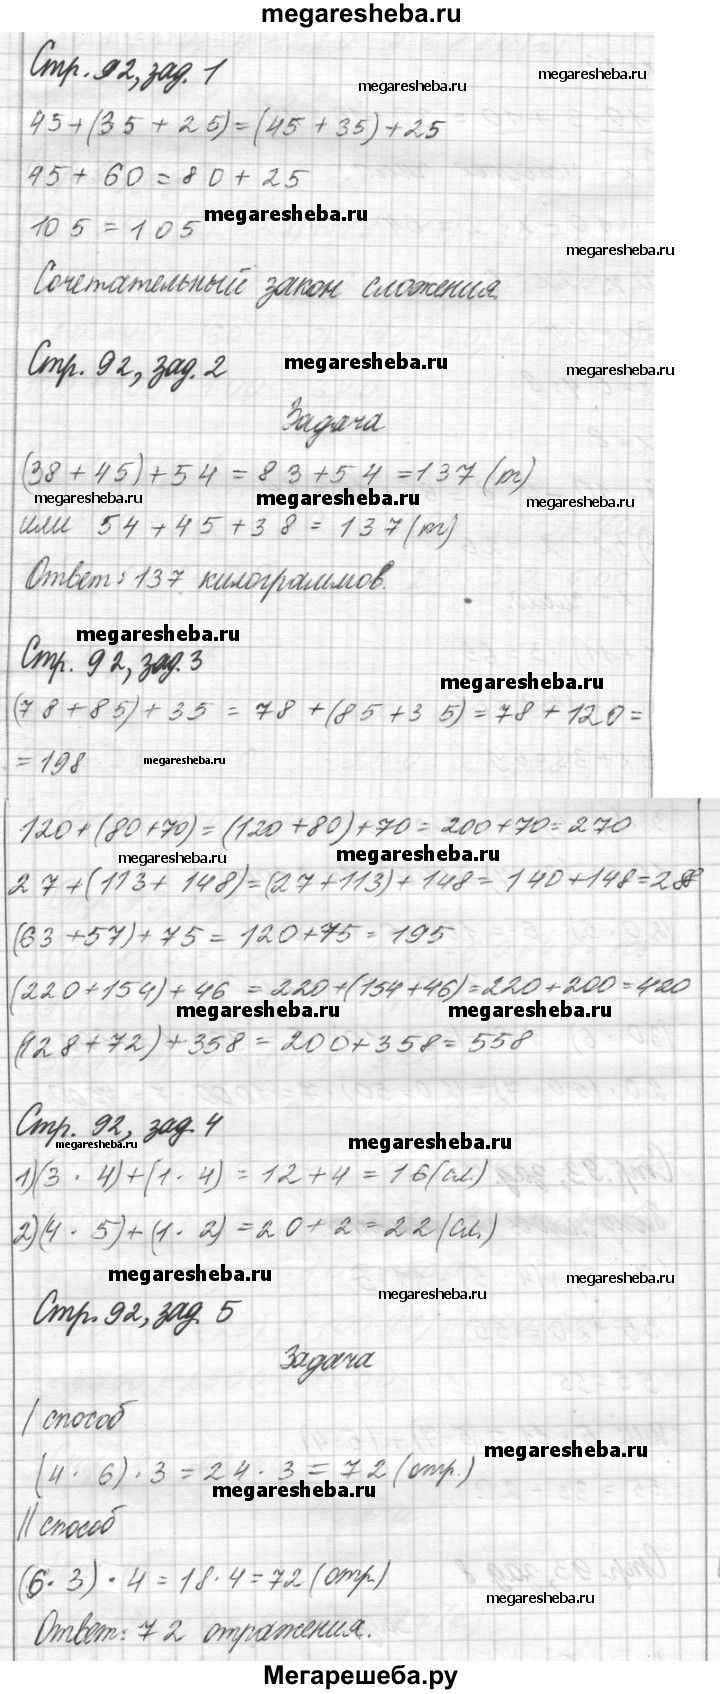 megaresheba.ru
Стр. 92, зад. 1
megaresheba.ru
megaresheba.ru
45+(35+25)=(45+35)+25
45+60=80+25
megaresheba.ru
105=105
megaresheba.ru
Сочетательный закон сложения
Стр. 92, зад. 2
megaresheba.ru
megaresheba.ru
Задача
(38+45)+54=83+54=137(кг)
megaresheba.ru
megaresheba.ru
megaresheba.ru
или 54+45+38=137(кг)
Ответ: 137 килограммов.
megaresheba.ru
Стр. 92, зад. 3
megaresheba.ru
(78+85)+35=78+(85+35)=78+120=
=198
megaresheba.ru
120+(80+70)=(120+80)+70=200+70=270
megaresheba.ru
megaresheba.ru
27+(113+148)=(27+113)+148=140+148=288
(63+57)+75=120+75=195
(220+154)+46=220+(154+46)=220+200=420
megaresheba.ru
megaresheba.ru
(128+72)+358=200+358=558
Стр. 92, зад. 4
megaresheba.ru
megaresheba.ru
1)(3·4)+(1·4)=12+4=16(сл.)
2)(4·5)+(1·2)=20+2=22(сл.)
megaresheba.ru
megaresheba.ru
Стр. 92, зад. 5
megaresheba.ru
Задача
I способ
megaresheba.ru
(4·6)·3=24·3=72(отр.)
megaresheba.ru
II способ
(6·3)·4=18·4=72(отр.)
megaresheba.ru
Ответ: 72 отражения.
Мегарешеба.ру